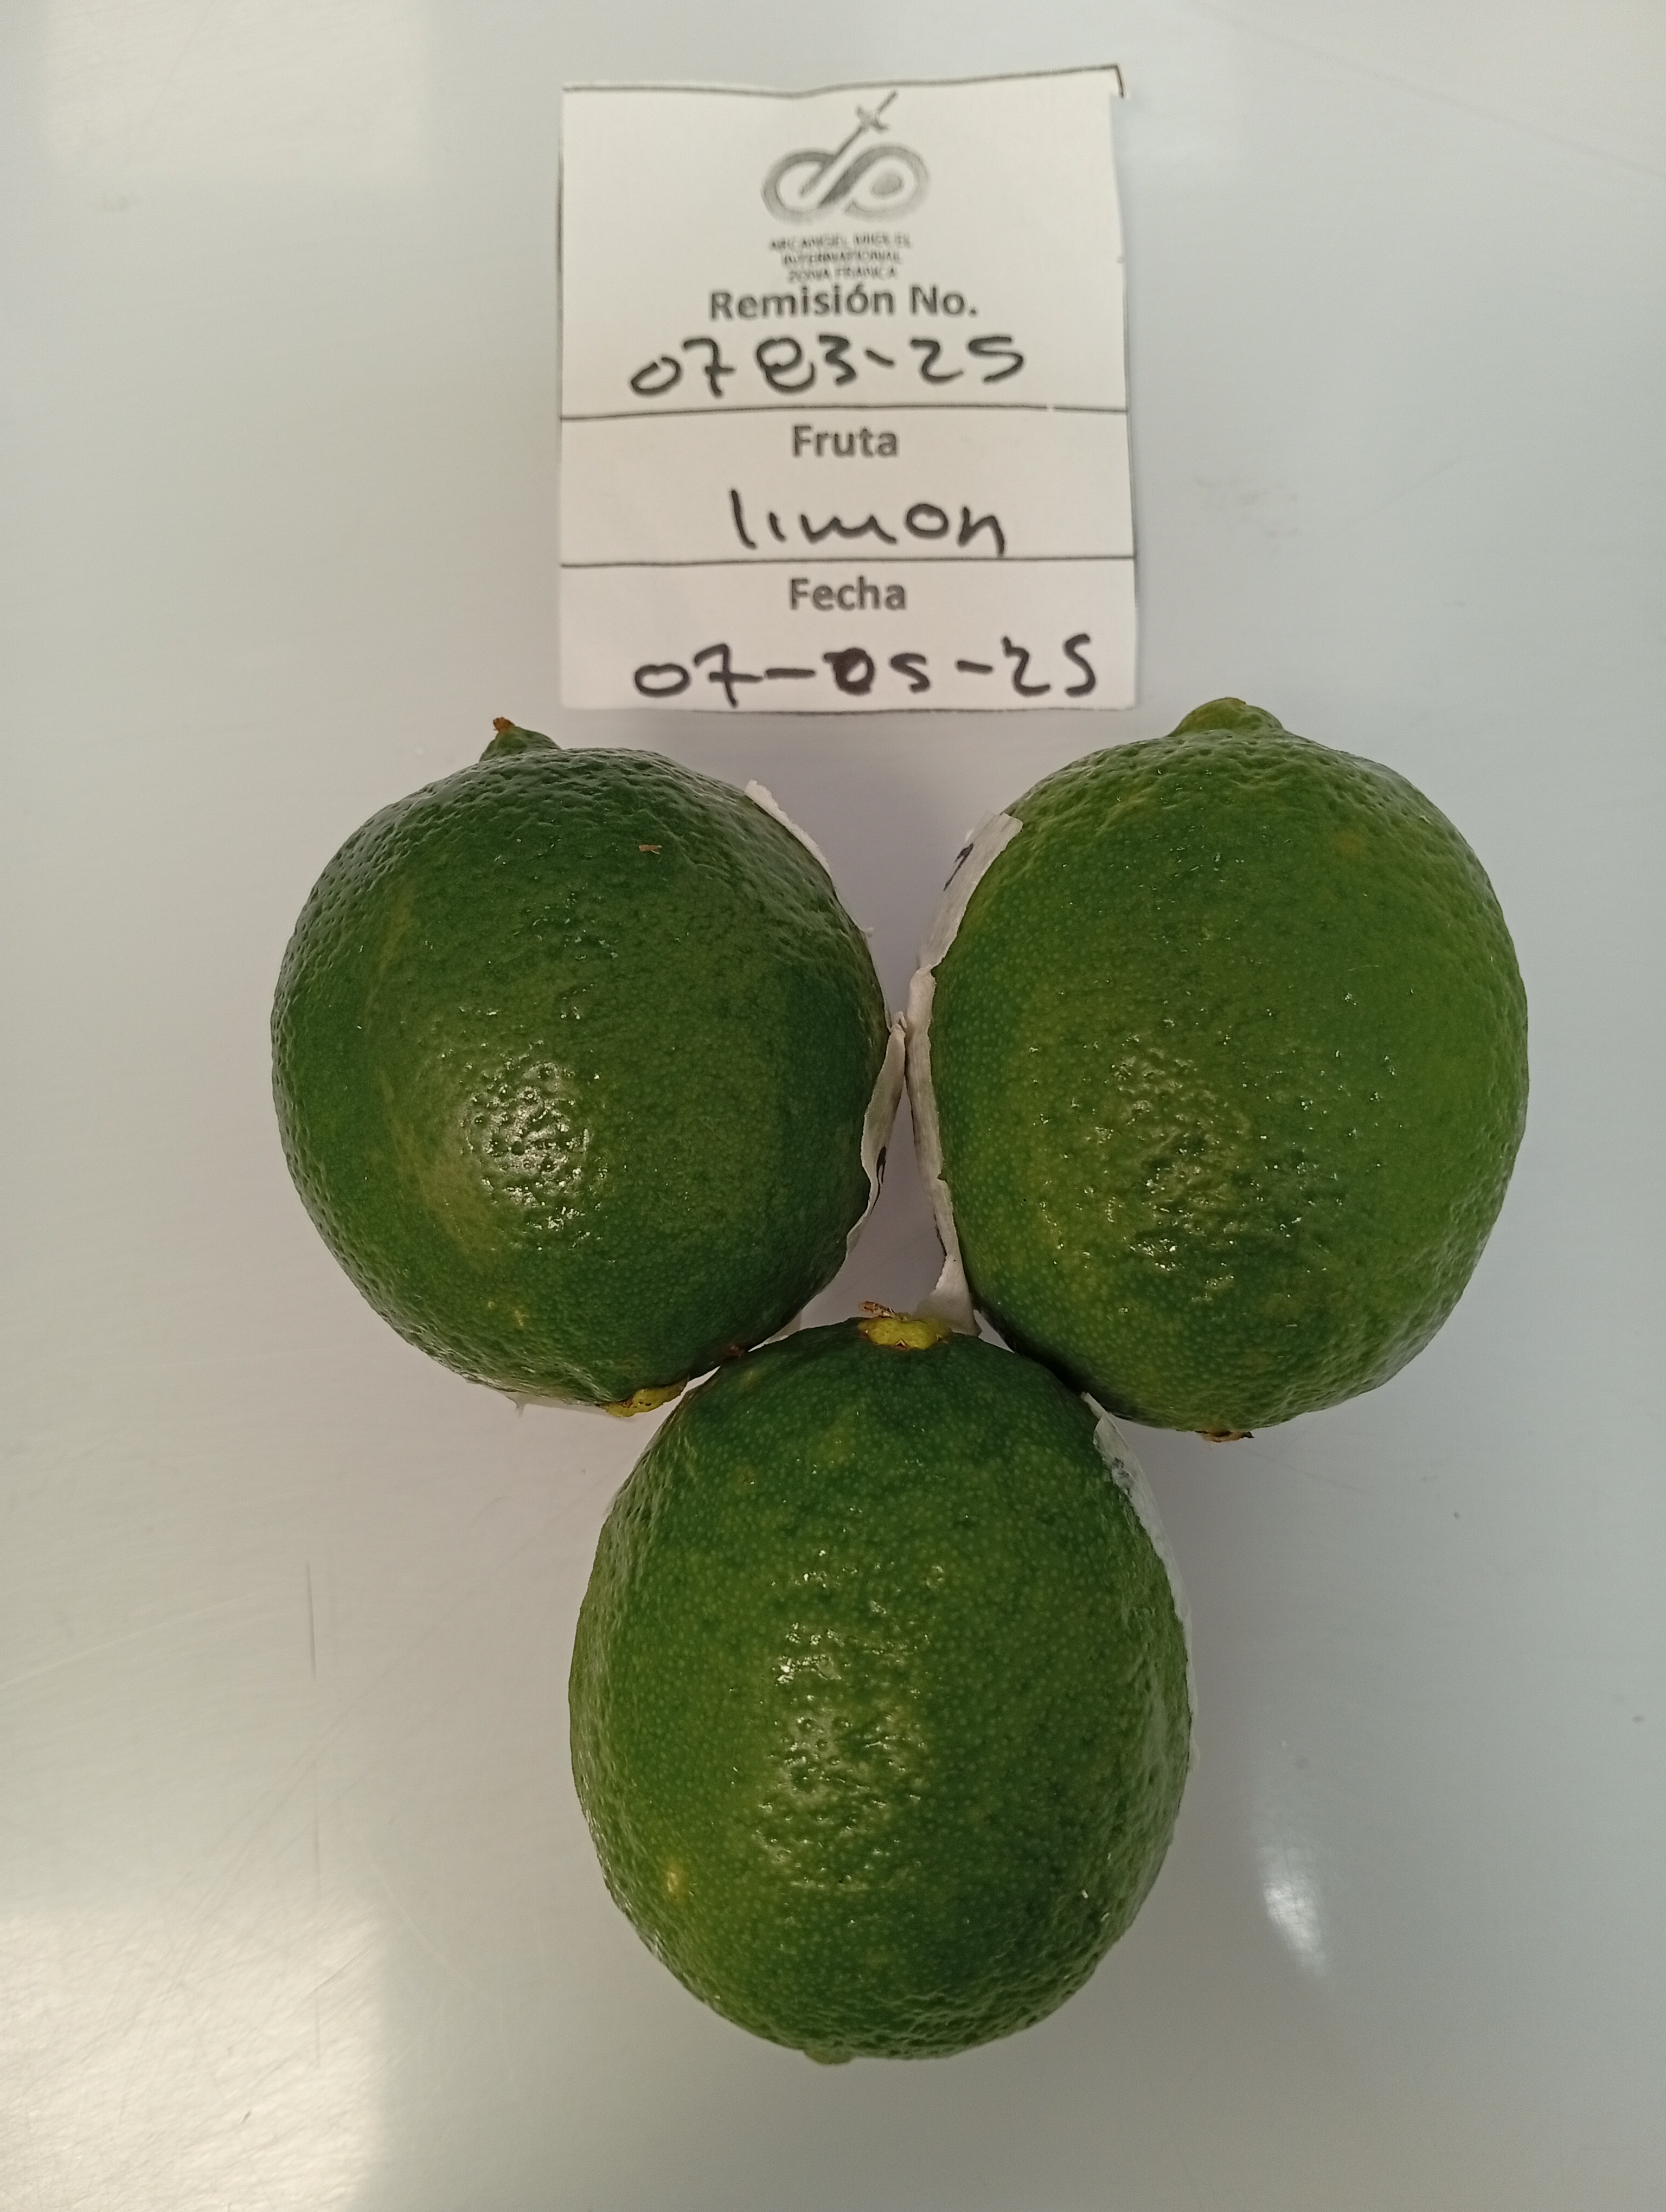 ARCANGEL MIGUEL
INTERNATIONAL
ZONA FRANCA
Remisión No.
0783-25
Fruta
limon
Fecha
07-05-25